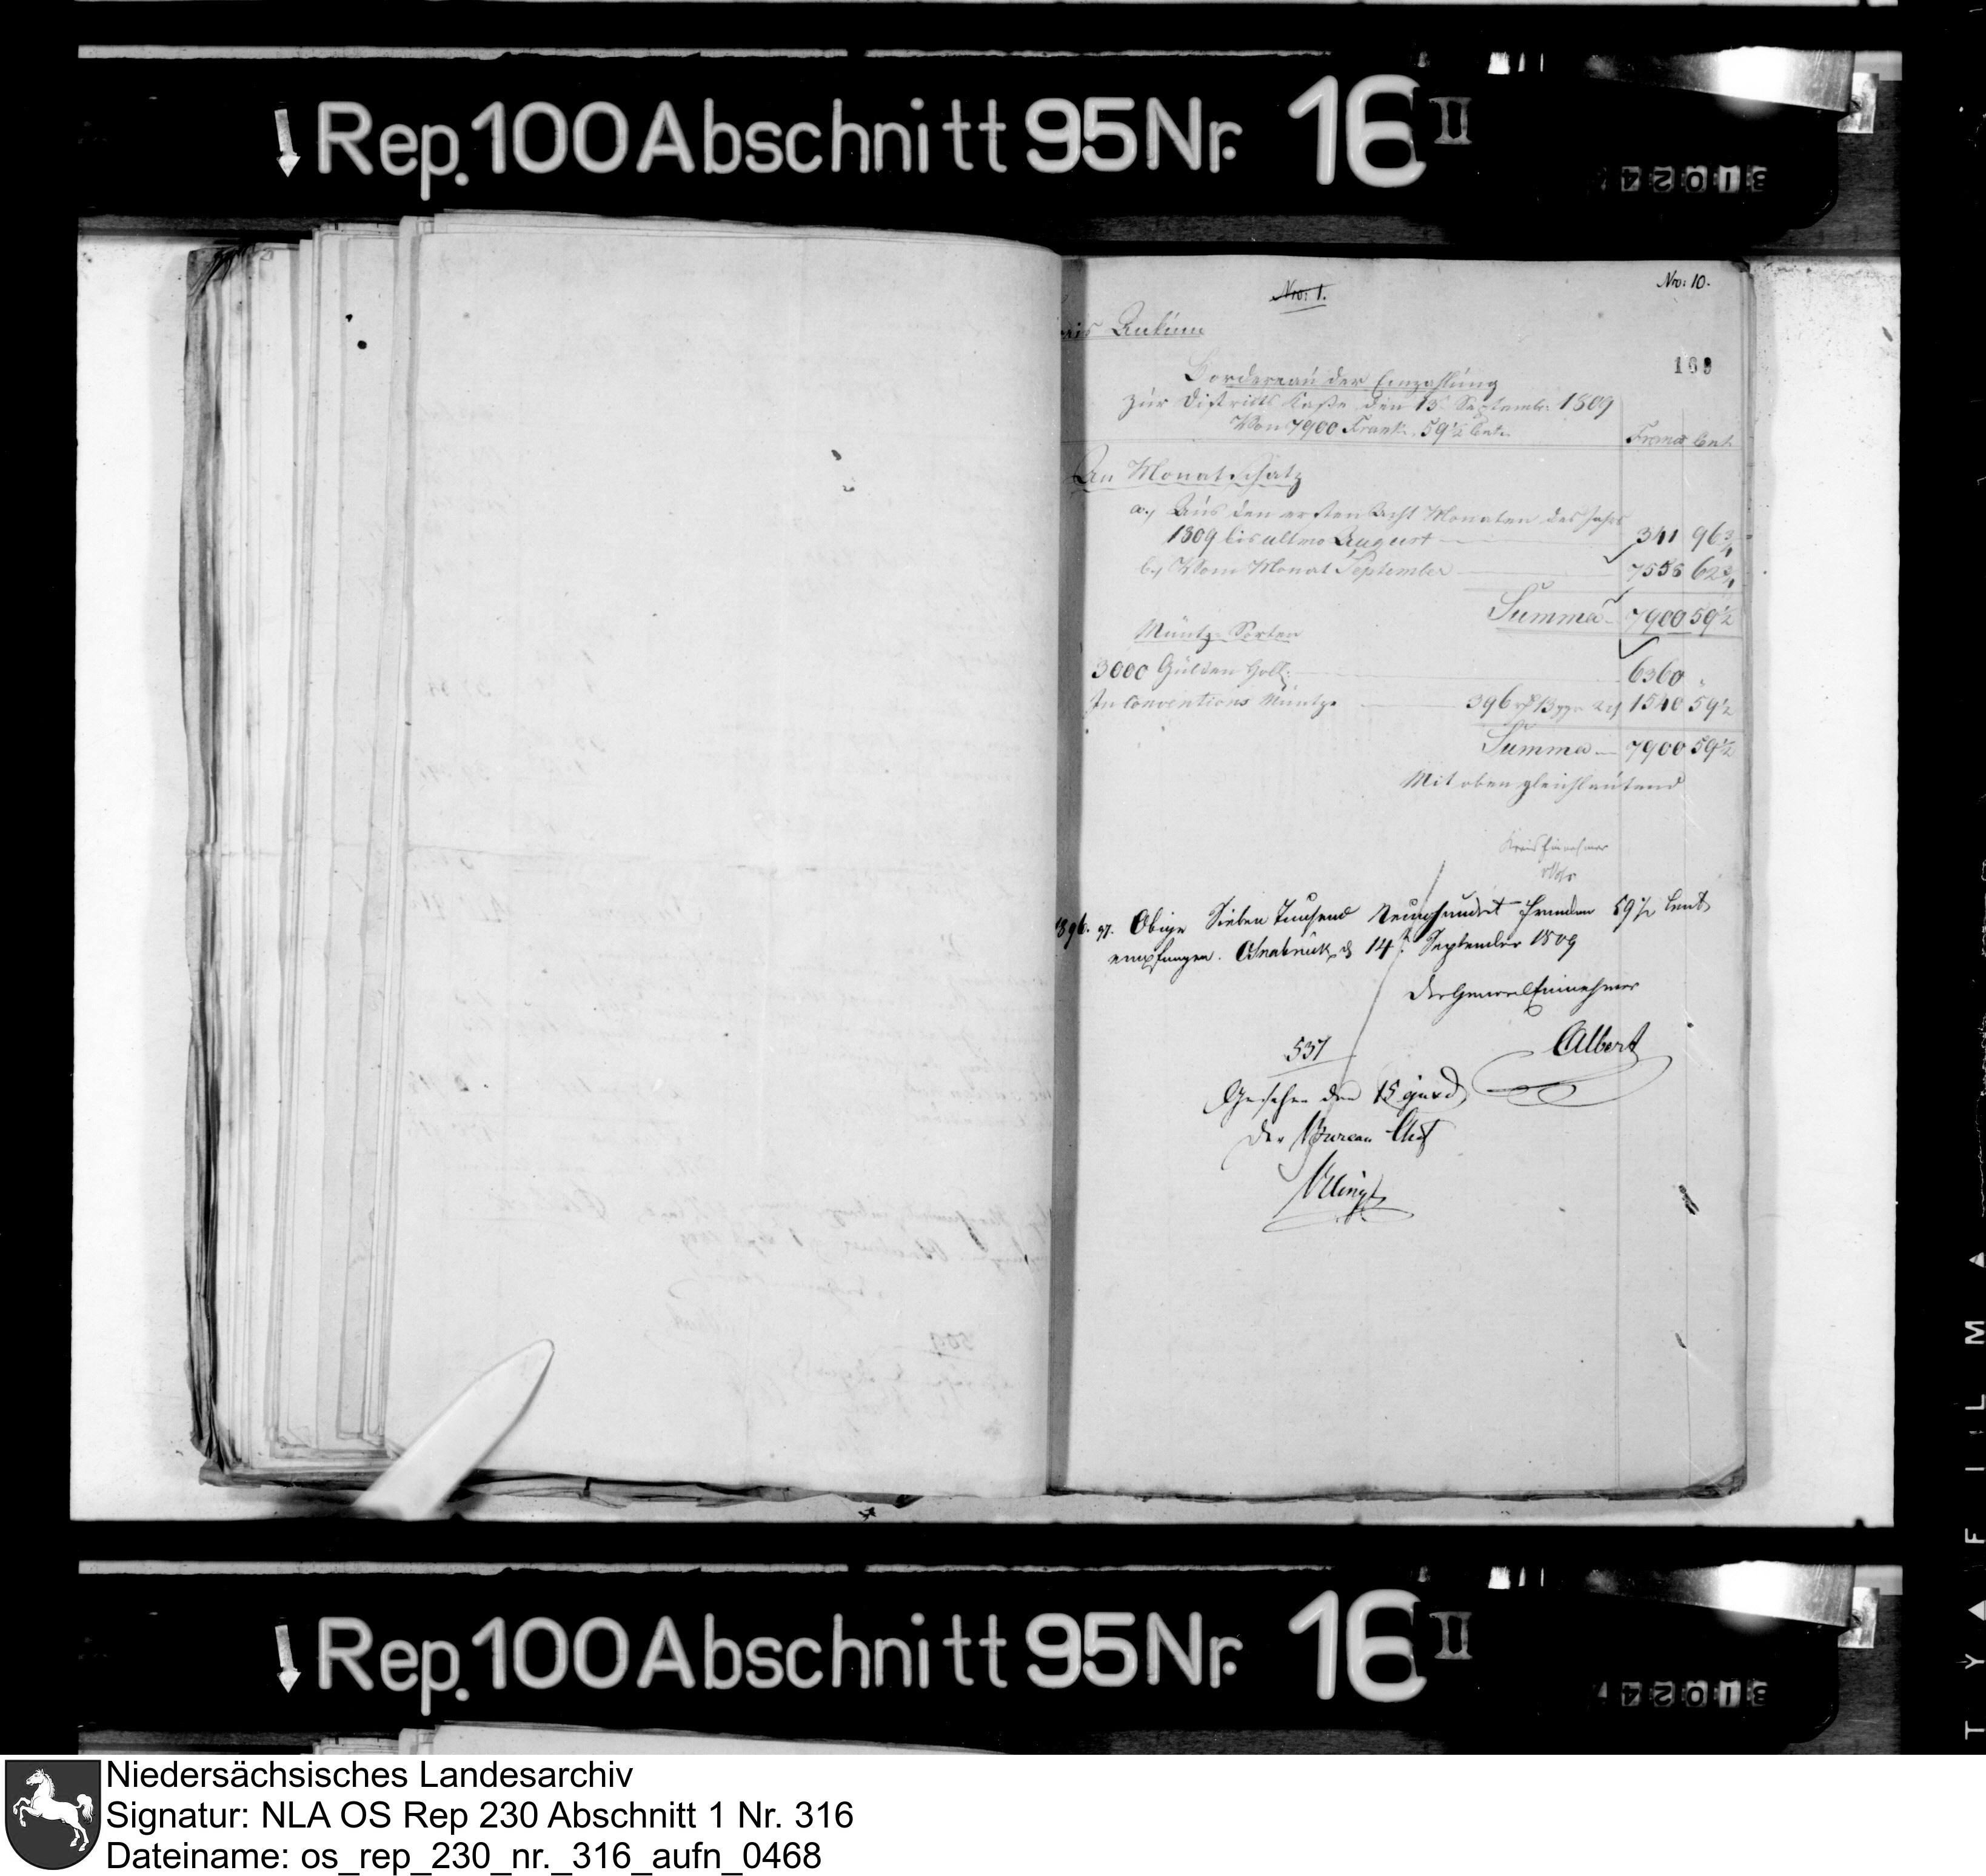 Rep. 100 Abschnitt 95 Nr. 16 II
31024
Nro: 1.
Nro: 10.
Ankum
169
Bordereau der Einzahlung
zur Districts Kasse den 13 Septemb: 1809
Von 7900 Frank. 59 1/2 Cent.
Franc Cent.
An Monatschatz
a., Aus den ersten acht Monaten des Jahrs
1809 bis ultmo August 341 96 3/4
b., Vom Monat September 62 3/4
Summa 7900 59 1/2
Müntz Sorten
3000 Gulden holl: 6360
In Conventions Müntze 396 13 1540 59 1/2
Summa 7900 59 1/2
Mit oben gleichlautend
Kreis Einnehmer
Obige Sieben Tausend Neunhundert Franken 59 1/2 Cent
empfangen. Osnabrück 14 September 1809
Der General Einnehmer
Albert
537
Gesehen den 15
Der Bureau Chef
T Y ▲ F I L M ▲
Rep. 100 Abschnitt 95 Nr. 16 II
31024
Niedersächsisches Landesarchiv
Signatur: NLA OS Rep 230 Abschnitt 1 Nr. 316
Dateiname: os_rep_230_nr._316_aufn_0468